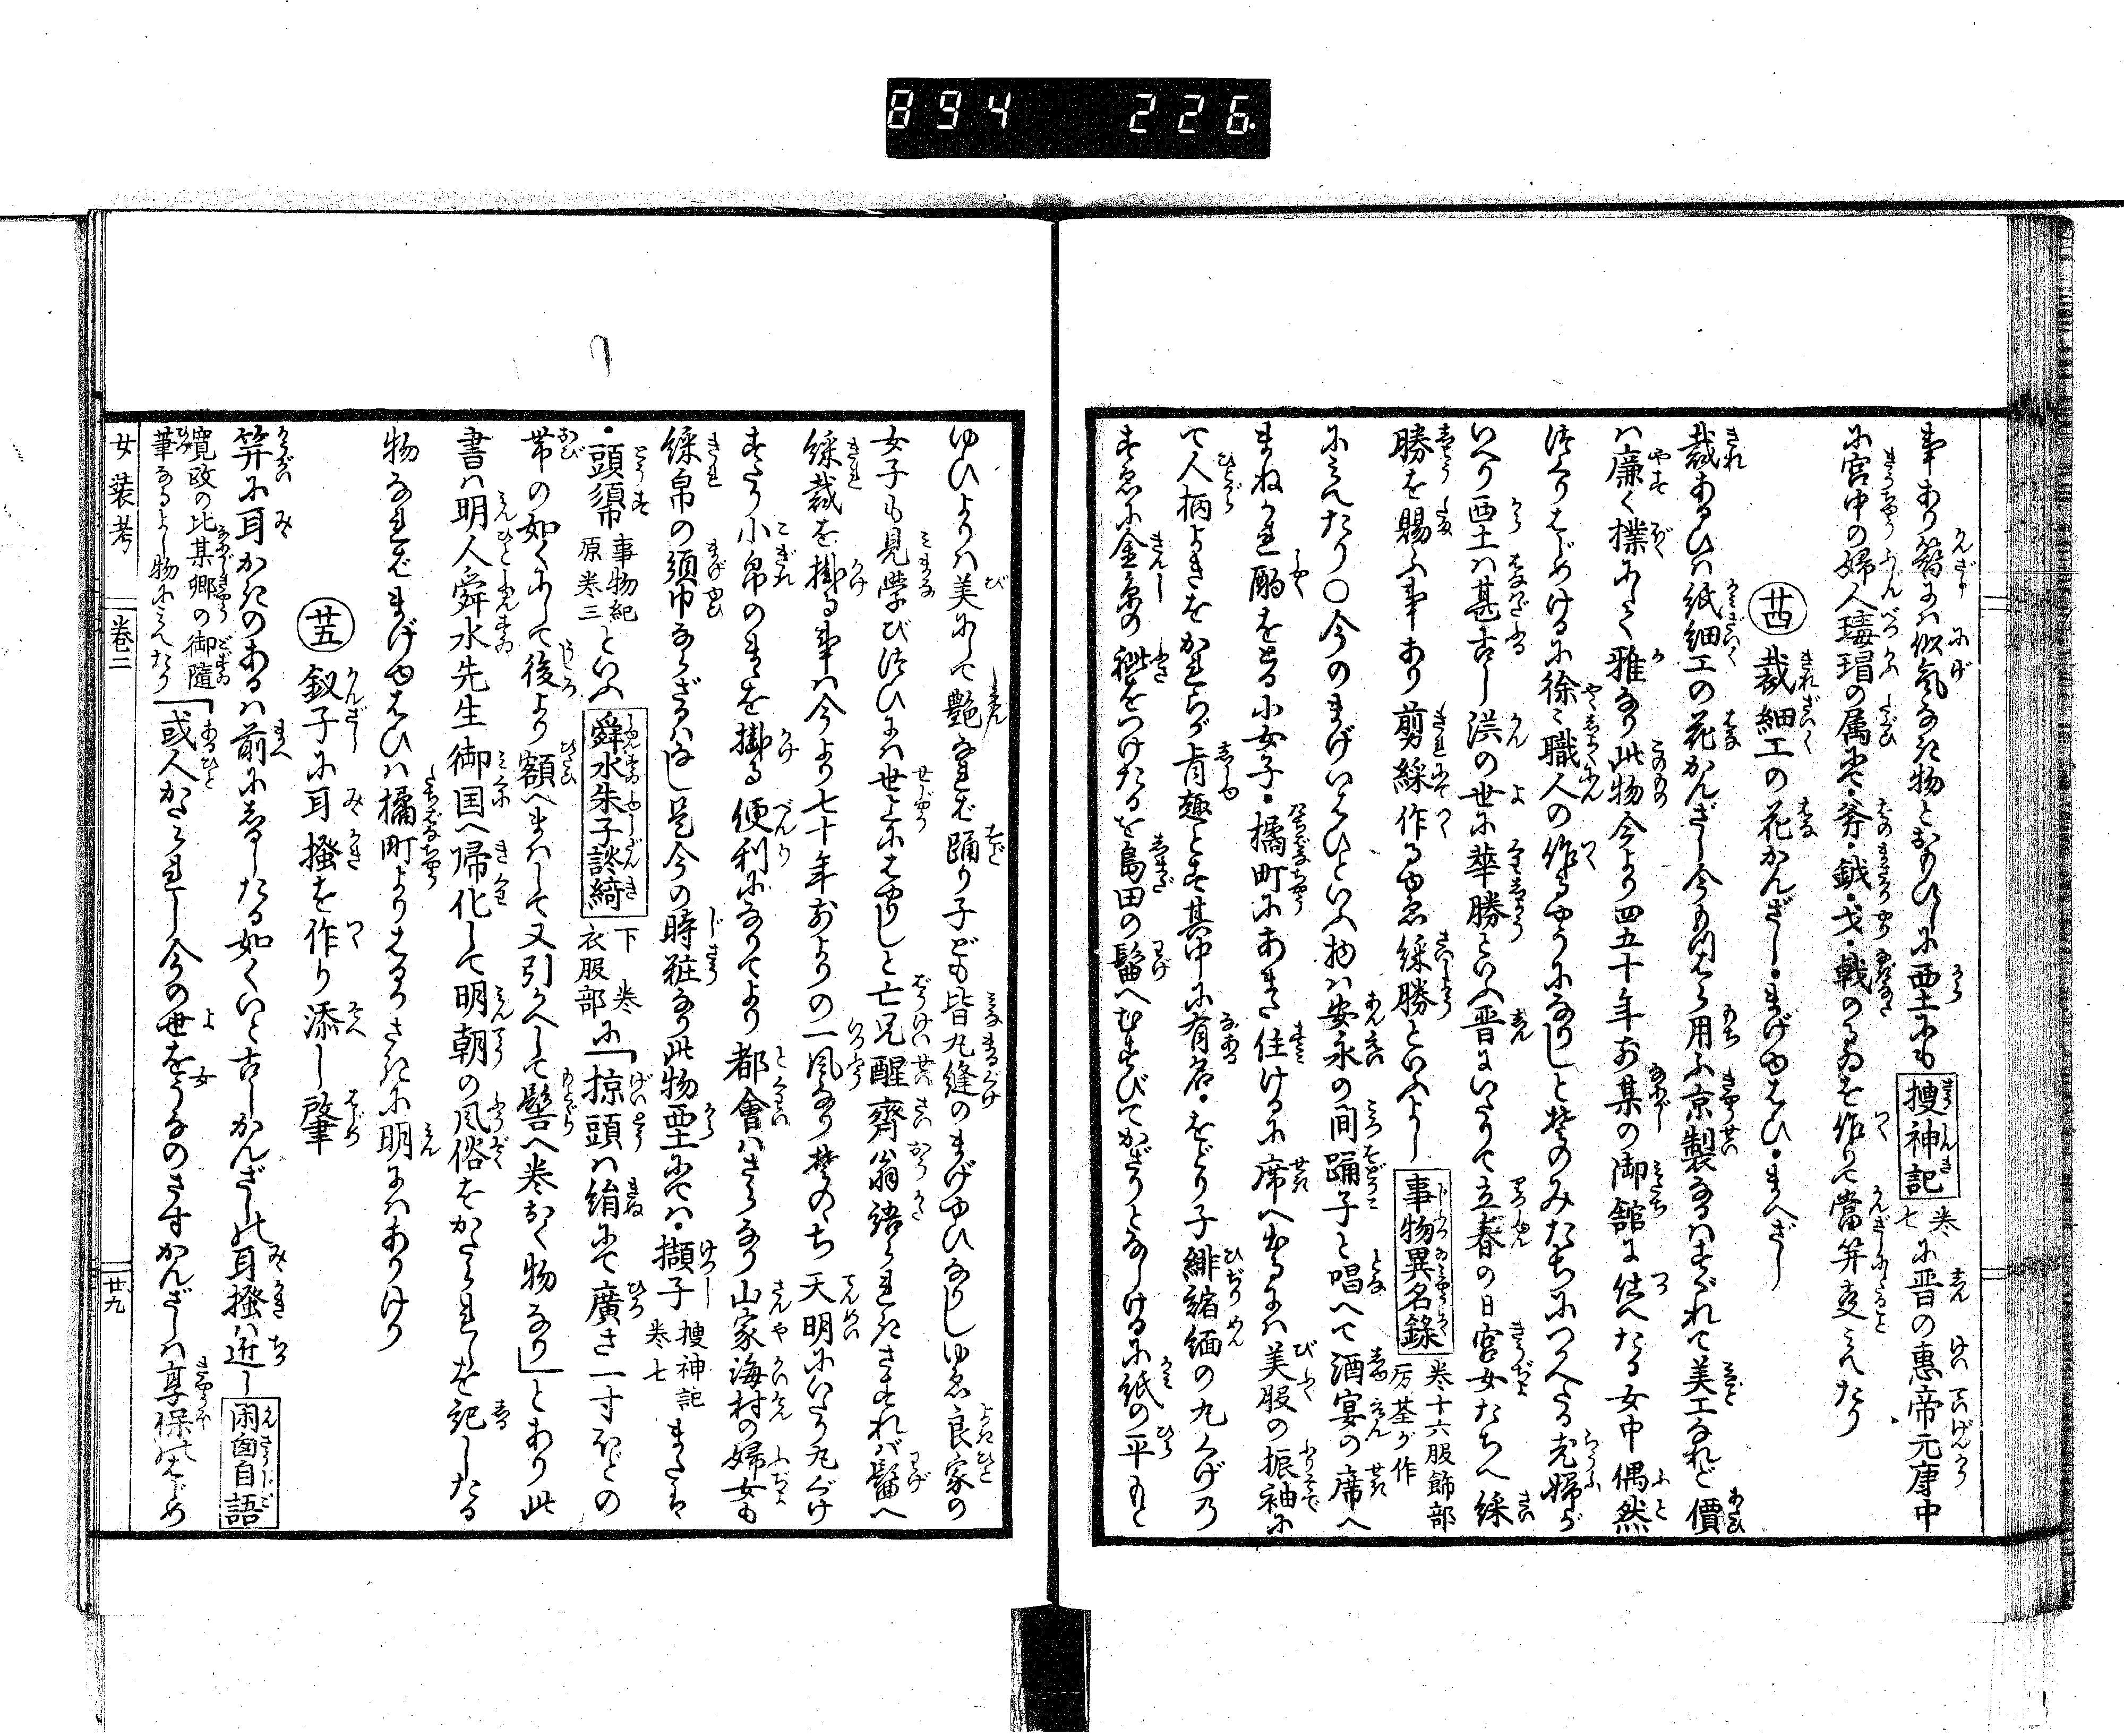 894 226.
事あり簪には似気なき物とおもひしに西土にも捜神記巻七に晋の恵帝元康中
に宮中の婦人瑇瑁の属にて斧・鉞・戈・戟のるゐを作りて當笄*
廿四 裁細工の花かんざし・まげゆはひ・まへざし
裁あるひは紙細工の花かんざし今もつはら用ふ京製なるはすぐれて美工なれど價
は廉く撲にして雅なり此物今より四五十年前某の御舘に仕へたる女中偶然
つくりはじめけるに徐々職人の作るやうになりしと其のみたちにつかへたる老婦が
いへり西土は甚古し漢の世に華勝といふ晋にいたりて立春の日官女たちへ綵
勝を賜ふ事あり剪綵作るゆゑ綵勝といふよし事物異名錄巻十六服飾部厉荃が作
にみえたり〇今のまげいはひといふ物は安永の間踊子と唱へて酒宴の席へ
まねかれ酌をとる小女子・橘町にあまた住けるに席へ出るには美服の振袖に
て人柄よきをかれらが肯趣とす其中に有名・をどり子緋縮緬の丸くげの
すゑに金糸の𦀌をつけたるを島田の髷へむすびてかざりとなしけるに紙の平もと
ゆひよりは美にして艶なれば踊り子ども皆丸縫のまげゆひなりしゆゑ良家の
女子も見學びつひには世上にはやりしと亡兄醒齊翁語られきされば髷へ
綵裁を掛る事は今より七十年前よりの一風なり其のち天明にいたり丸ぐけ
すたり小帛のきを掛る便利になりてより都會はさらなり山家海村の婦女も
綵帛の須巾ならざるはなし是今の時粧なり此物西土にては・擷子捜神記巻七または
・頭須事物紀原巻三といふ舜水朱子談綺下巻衣服部に「掠頭は絹にて廣さ一寸ほどの
帯の如くにして後より額へまはして又引かへして髻へ巻おく物なり」とあり此
書は明人舜水先生御国へ帰化して明朝の風俗をかたられしを記したる
物なればまげゆはひは橘町よりはるかさきに明にはありけり
廿五 釵子に耳掻を作り添し肇
笄に耳かきのあるは前にしるしたる如くいと古しかんざしの耳掻は近し閑窗自語
寛政の比某郷の御隨
筆なるよし物にみえたり「或人かたられし今の世をうなのさすかんざしは享保のはじめ
女装考 巻二 廿九